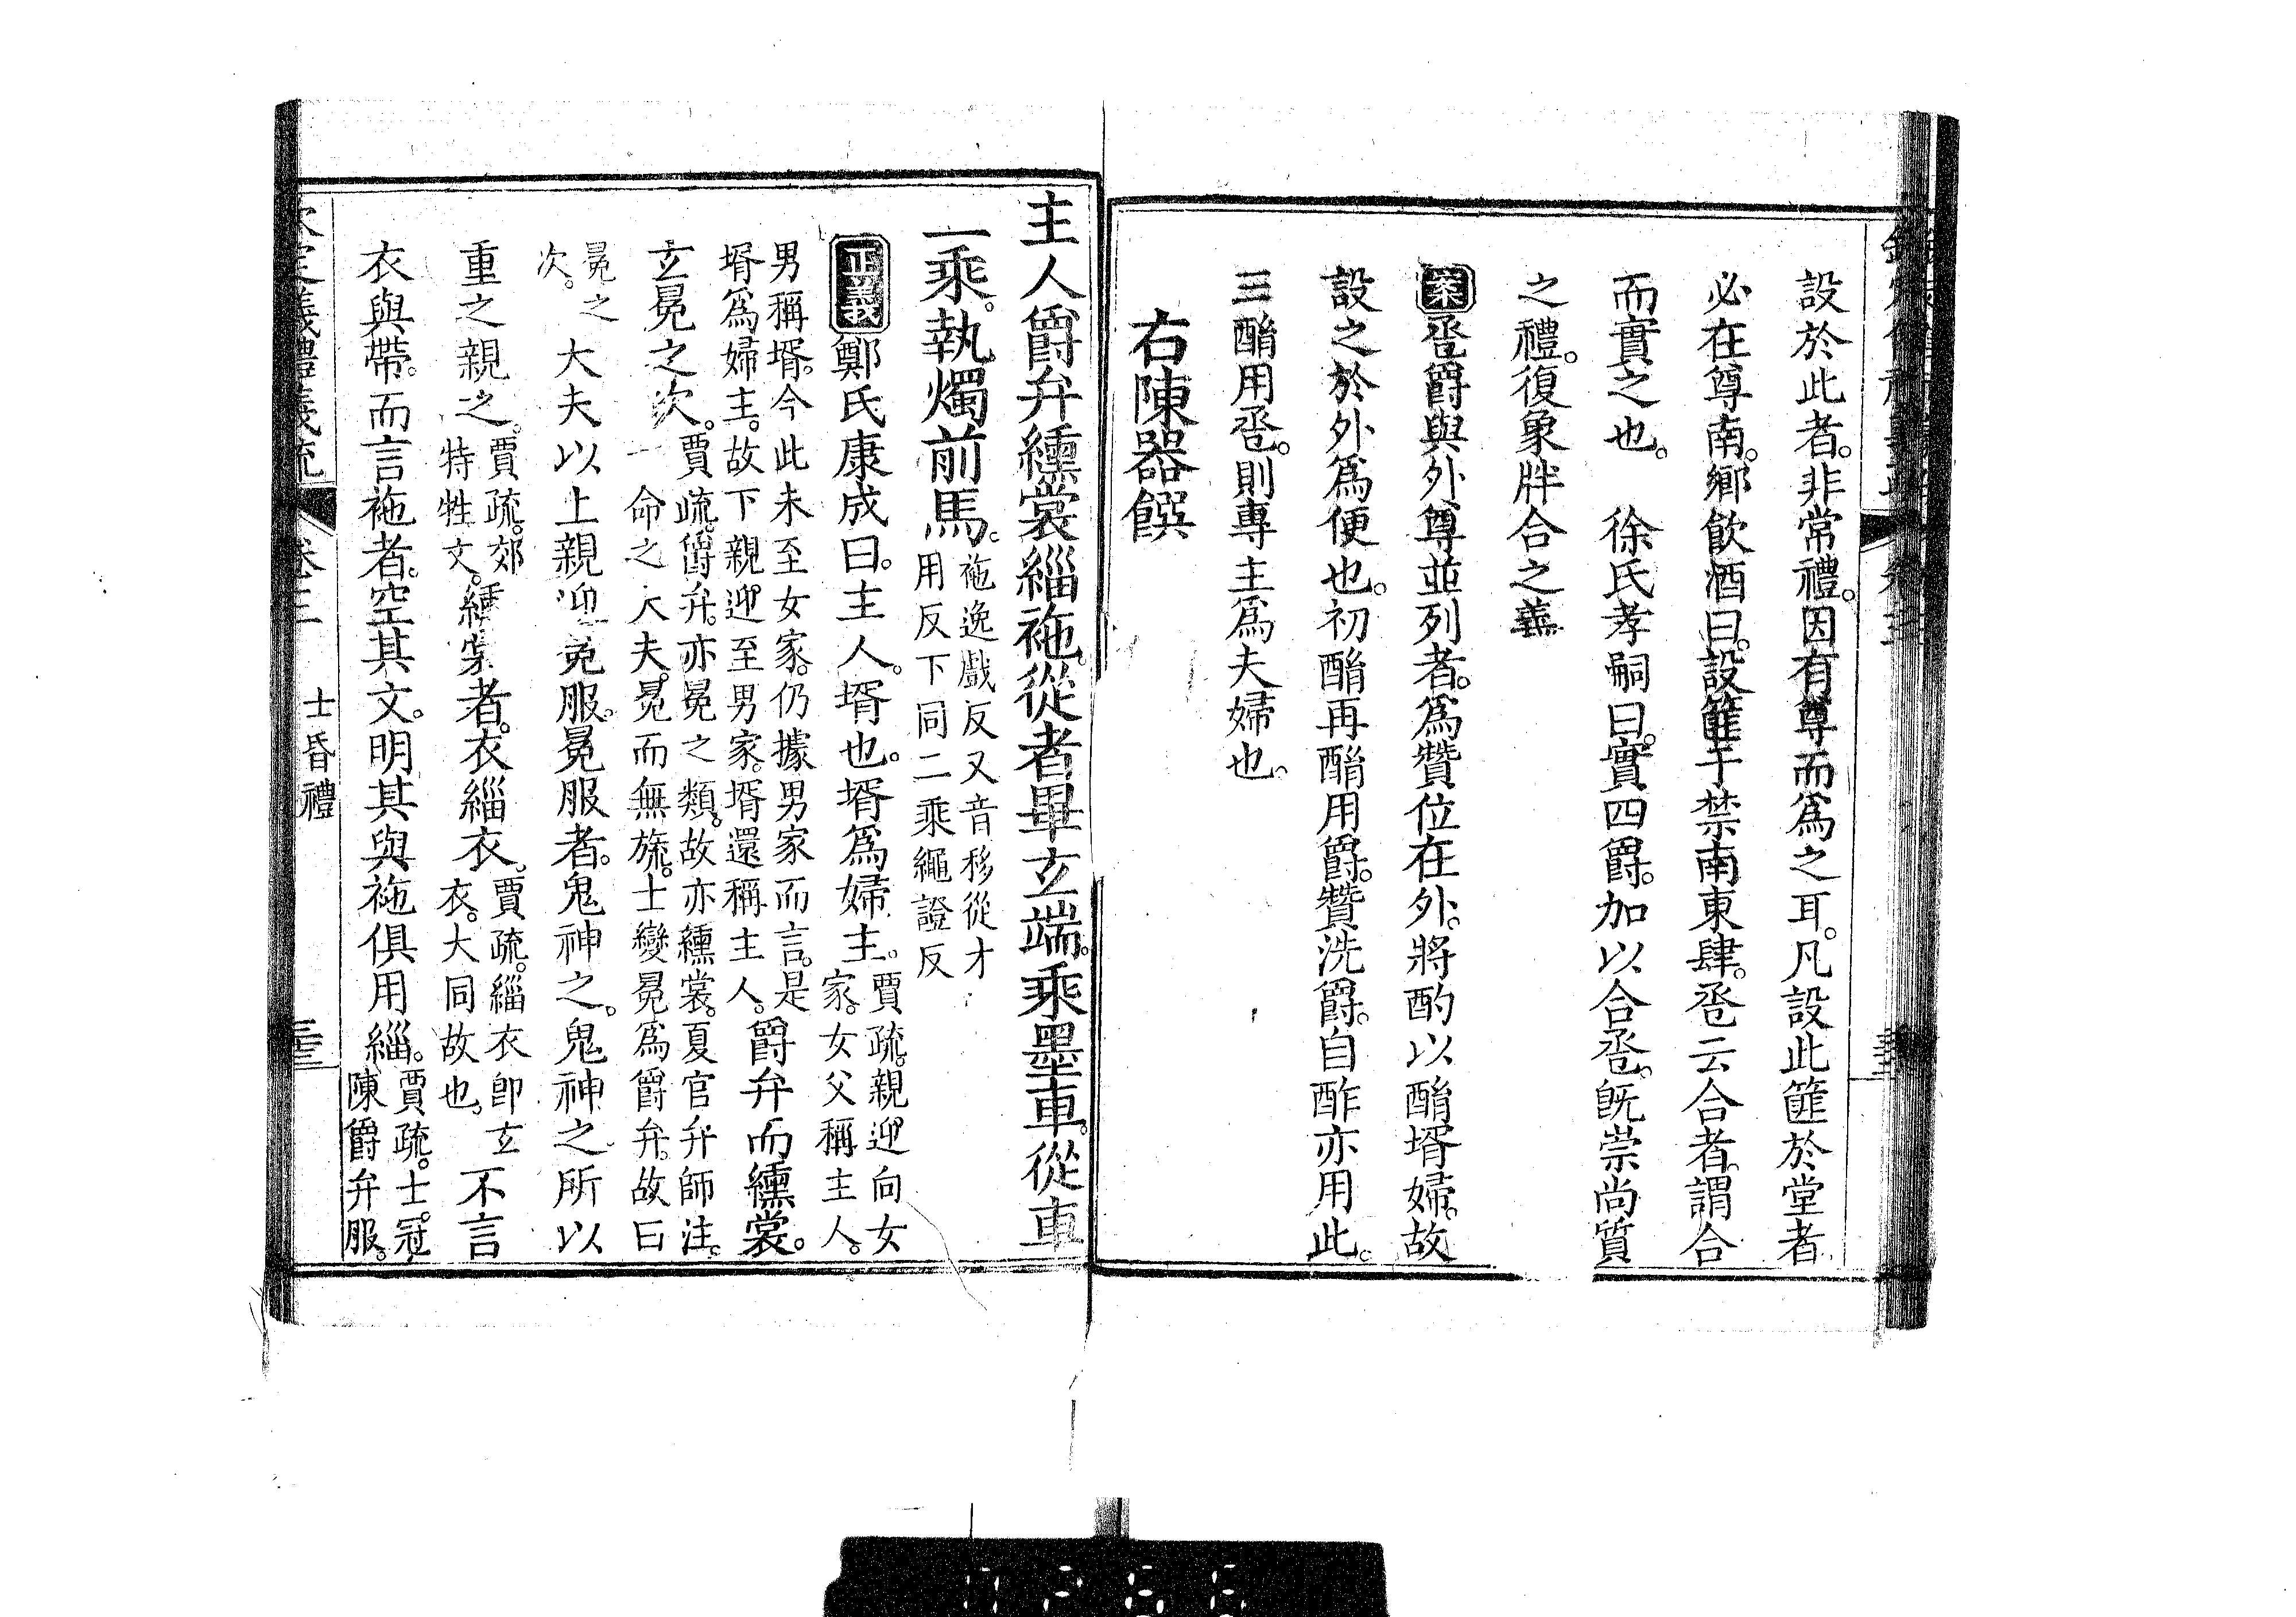 設於此者。非常禮。因有尊而爲之耳。凡設此篚於堂者
必在尊南。鄉飲酒曰。設篚于禁南東肆。巹云合者。謂合
而實之也。　徐氏孝嗣曰。實四爵。加以合巹。旣崇尚質
之禮。復象牉合之義
案巹爵與外尊並列者。爲贊位在外。將酌以酳壻婦。故
設之於外爲便也。初酳再酳用爵。贊洗爵。自酢亦用此。
三酳用巹。則專主爲夫婦也。
右陳器饌
主人爵弁纁裳緇袘。從者畢玄端。乘墨車。從車
一乘。執燭前馬。袘逸戲反又音移從才
用反下同二乘繩證反
正義鄭氏康成曰。主人。壻也。壻爲婦主。賈疏。親迎向女
家。女父稱主人。
男稱壻。今此未至女家。仍據男家而言。是
壻爲婦主。故下親迎至男家。壻還稱主人。爵弁而纁裳。
玄冕之次。賈疏。爵弁。亦冕之類。故亦纁裳。夏官弁師注。
一命之大夫。冕而無旒。士變冕爲爵弁。故曰
冕之
次。大夫以上親迎冕服。冕服者。鬼神之。鬼神之所以
重之親之。賈疏。郊
特牲文。纁裳者。衣緇衣。賈疏。緇衣卽玄
衣。大同故也。不言
衣與帶。而言袘者。空其文。明其與袘俱用緇。賈疏。士冠
陳爵弁服。
義禮義疏　卷三　士昏禮